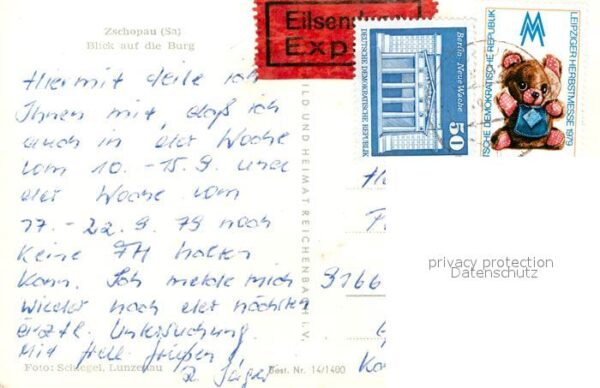 Zschopau (Sa)
Blick auf die Burg
Hiermit teile ich
Ihnen mit, daß ich
auch in der Woche
vom 10. - 15.9. und
der Woche vom
17. - 22.9.79 noch
keine FH halten
kann. Ich melde mich
wieder nach der nächsten
ärztl. Untersuchung.
Mit frdl. Grüßen
R. Jäger
Foto: Schlegel, Lunzenau
Best. Nr. 14/1400
BILD UND HEIMAT REICHENBACH i. V.
Eilsen
Exp
Berlin · Neue Wache
DEUTSCHE DEMOKRATISCHE REPUBLIK
50
MM
LEIPZIGER HERBSTMESSE 1979
TSCHE DEMOKRATISCHE REPUBLIK
9166
privacy protection
Datenschutz